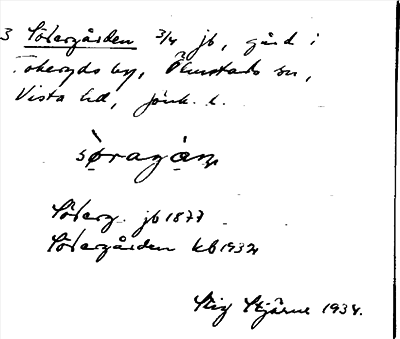 3 Södergården 3/4 jb, gård i
Tokeryds by, Ölmstads sn,
Vista hd, Jönk. l.
sø̀ragàɳ
Söderg. jb 1877
Södergården kb 1932
Stig Stjärne 1934.